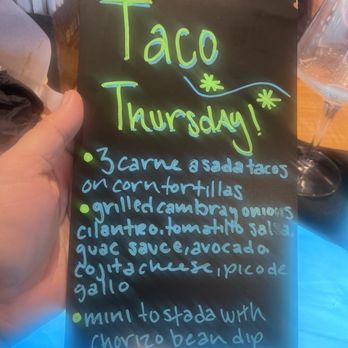 Taco
Thursday!
• 3 carne asada tacos
on corn tortillas
• grilled cambray onions
cilantro, tomatillo salsa,
guac sauce, avocado
cojita cheese, pico de
gallo
• mini tostada with
chorizo bean dip